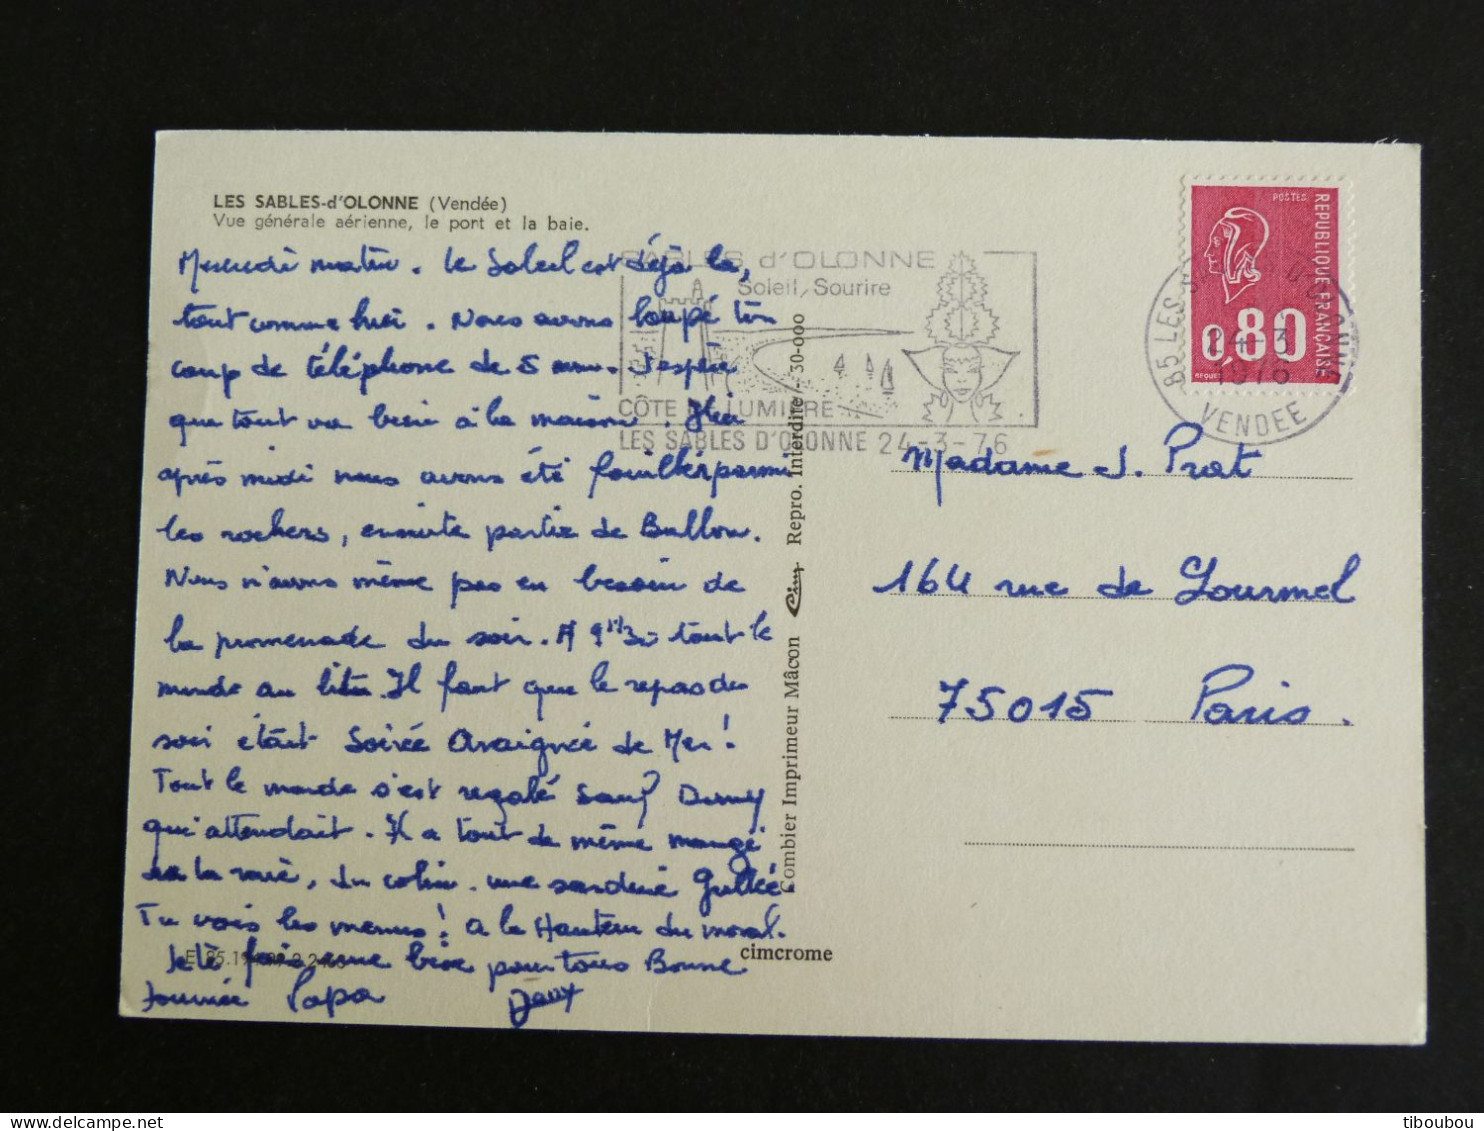 LES SABLES-d'OLONNE (Vendée)
Vue générale aérienne, le port et la baie.
Mercredi matin. Le Soleil est déjà là,
tout comme hier. Nous avons loupé ton
coup de téléphone de 5 mn. J'espère
que tout va bien à la maison. Hier
après midi nous avons été fouiller parmi
les rochers, ensuite partie de Ballon.
Nous n'avons même pas eu besoin de
la promenade du soir. A 9h30 tout le
monde au lit. Il faut que le repas du
soir était Soirée Araignée de Mer!
Tout le monde s'est régalé sauf
qui attendait. Il a tout de même mangé
de la raie, du colin. une sardine grillée.
Tu vois les menus! A la Hauteur du moral.
Je te fais une bise pour tous Bonne
Journée Papa
SABLES d'OLONNE
Soleil, Sourire
CÔTE DE LUMIÈRE
LES SABLES D'OLONNE 24-3-76
Combier Imprimeur Mâcon Cim Repro. Interdite - 30-000
cimcrome
POSTES
REPUBLIQUE FRANÇAISE
0,80
BEQUET
85 LES SABLES D'OLONNE
24-3
1976
VENDEE
Madame J. Prat
164 rue de Lourmel
75015 Paris.
tiboubou